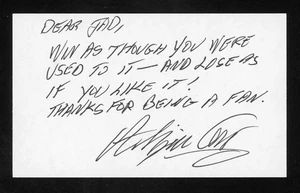 DEAR JAD,
WIN AS THOUGH YOU WERE
USED TO IT — AND LOSE AS
IF YOU LIKE IT!
THANKS FOR BEING A FAN.